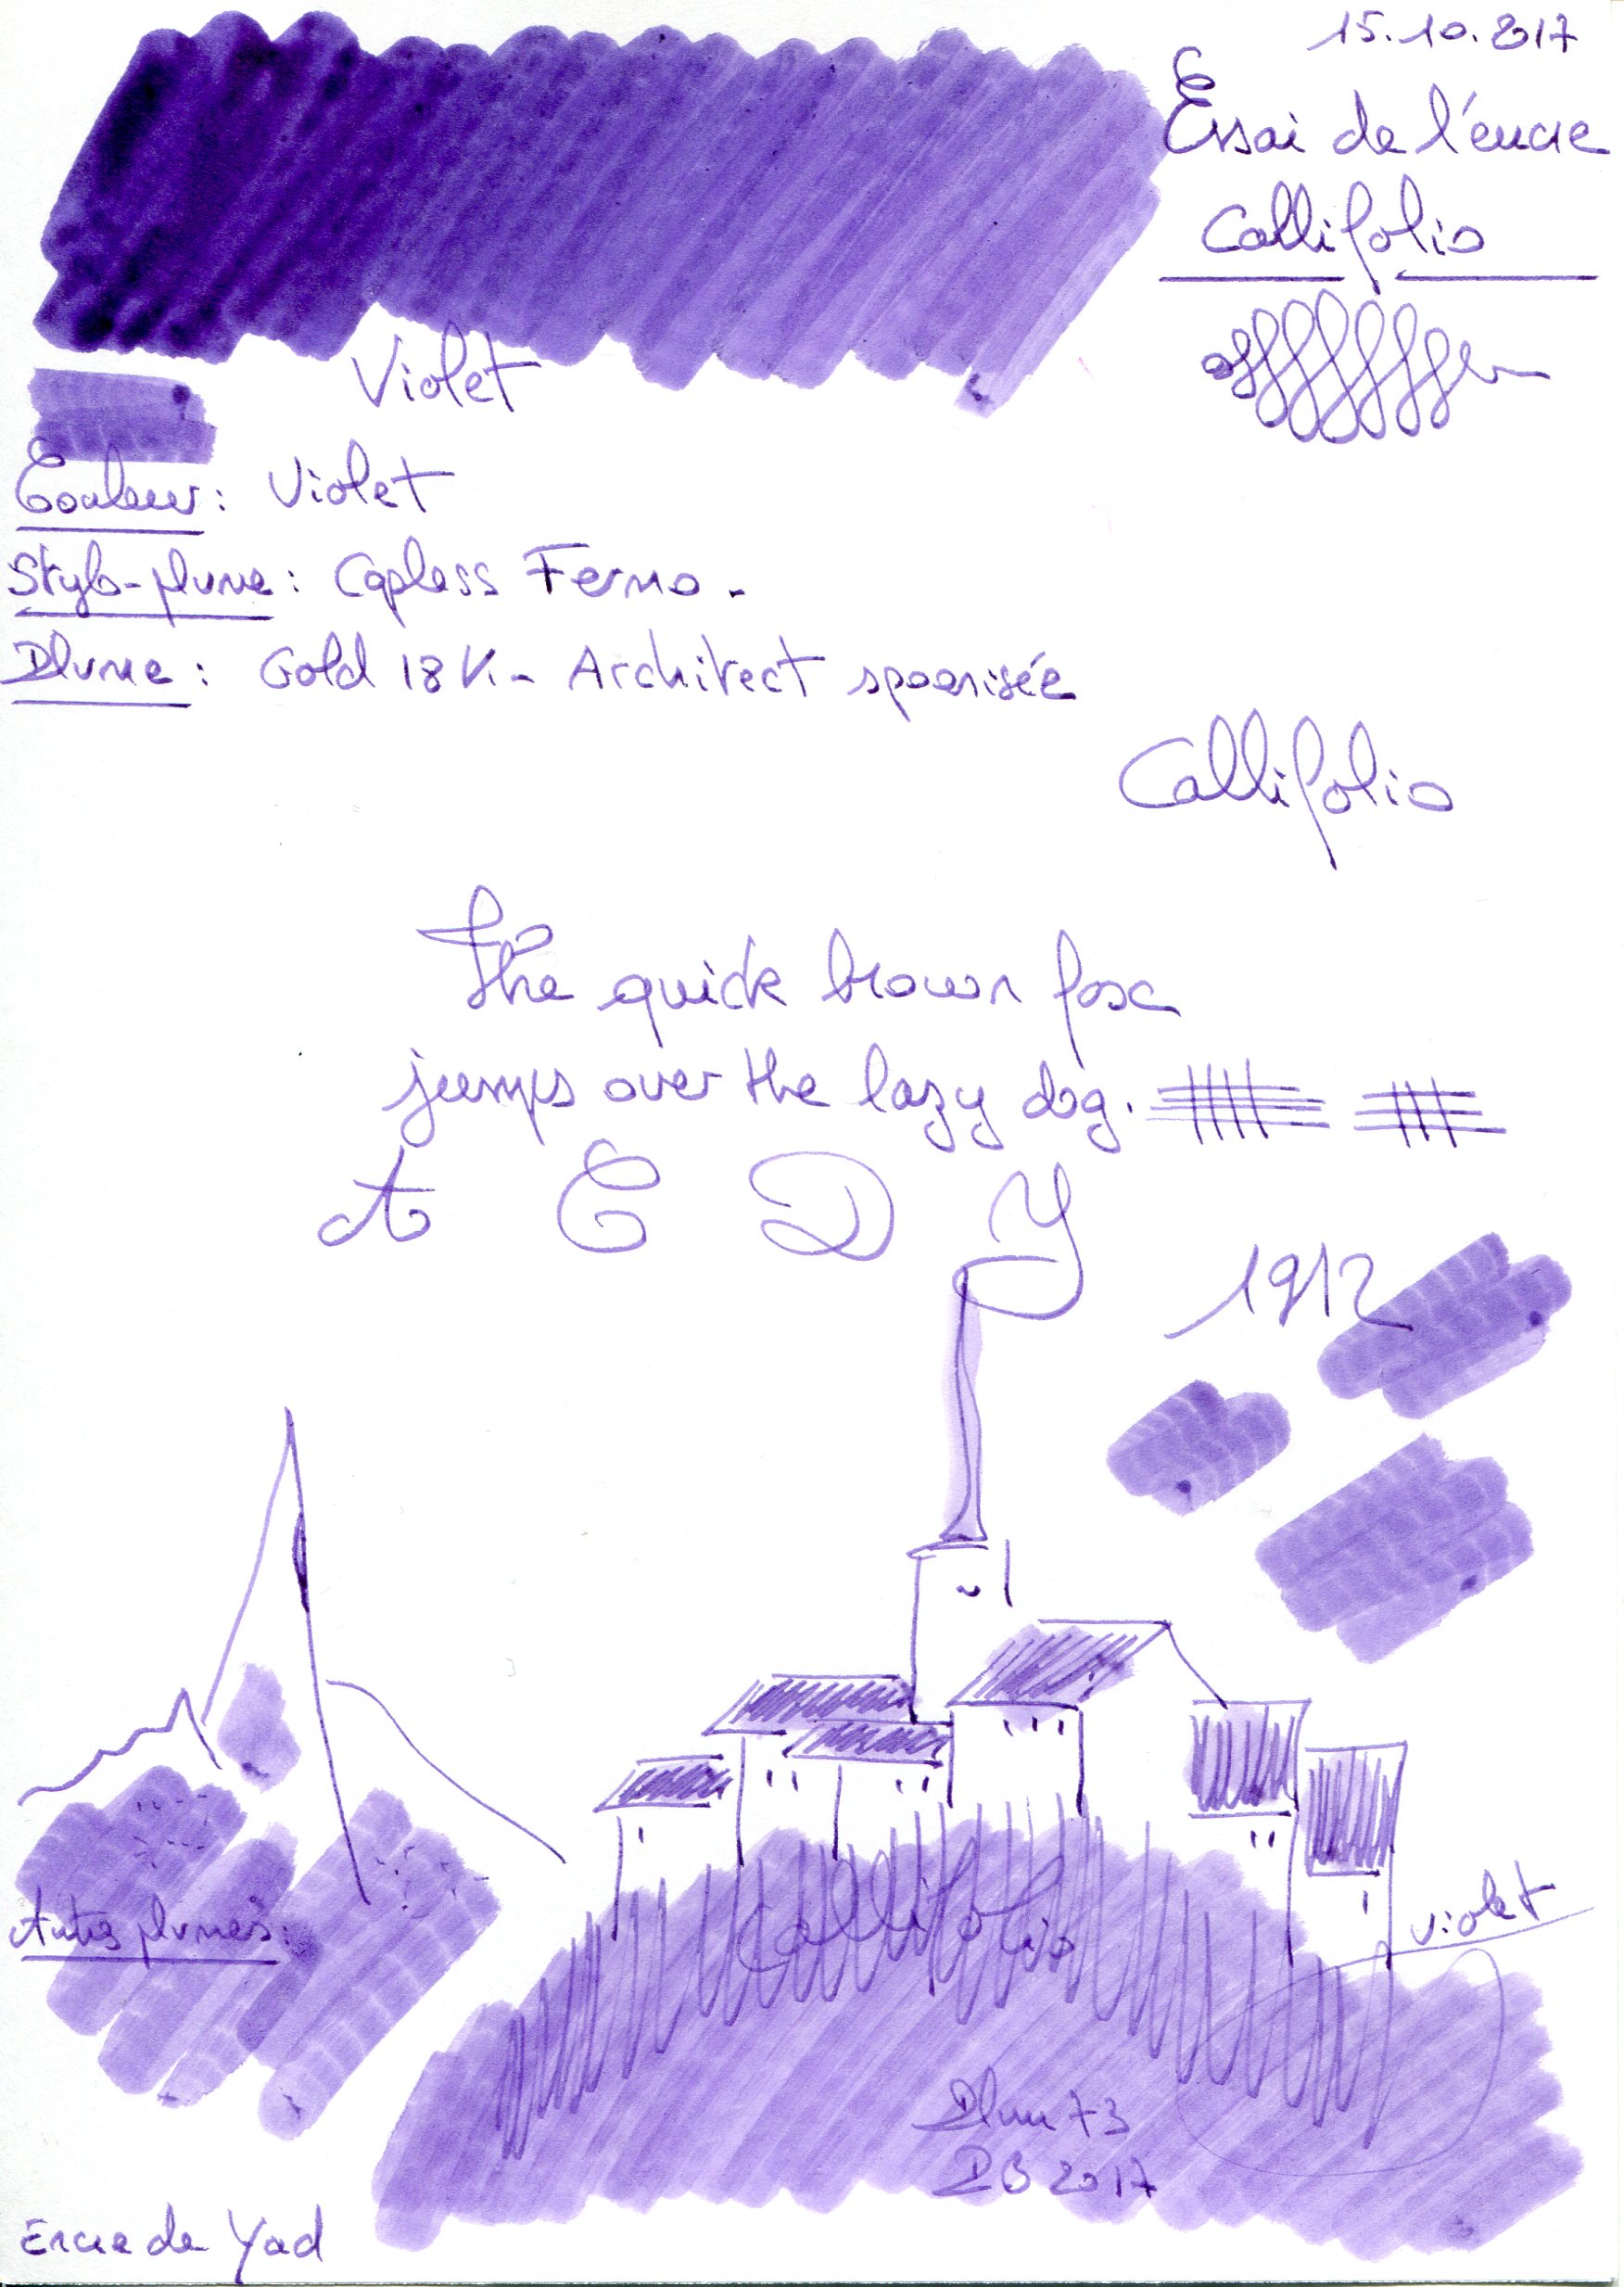 15.10.2017
Essai de l'encre
Callifolio
Violet
Couleur: Violet
Stylo-plume: Capless Fermo.
Plume: Gold 18K. - Architect spoerisée
Callifolio
The quick brown fox
jumps over the lazy dog.
A C D Y
1912
Autres plumes:
Callifolio
violet
Plum 73
DB 2017
Encre de Yad